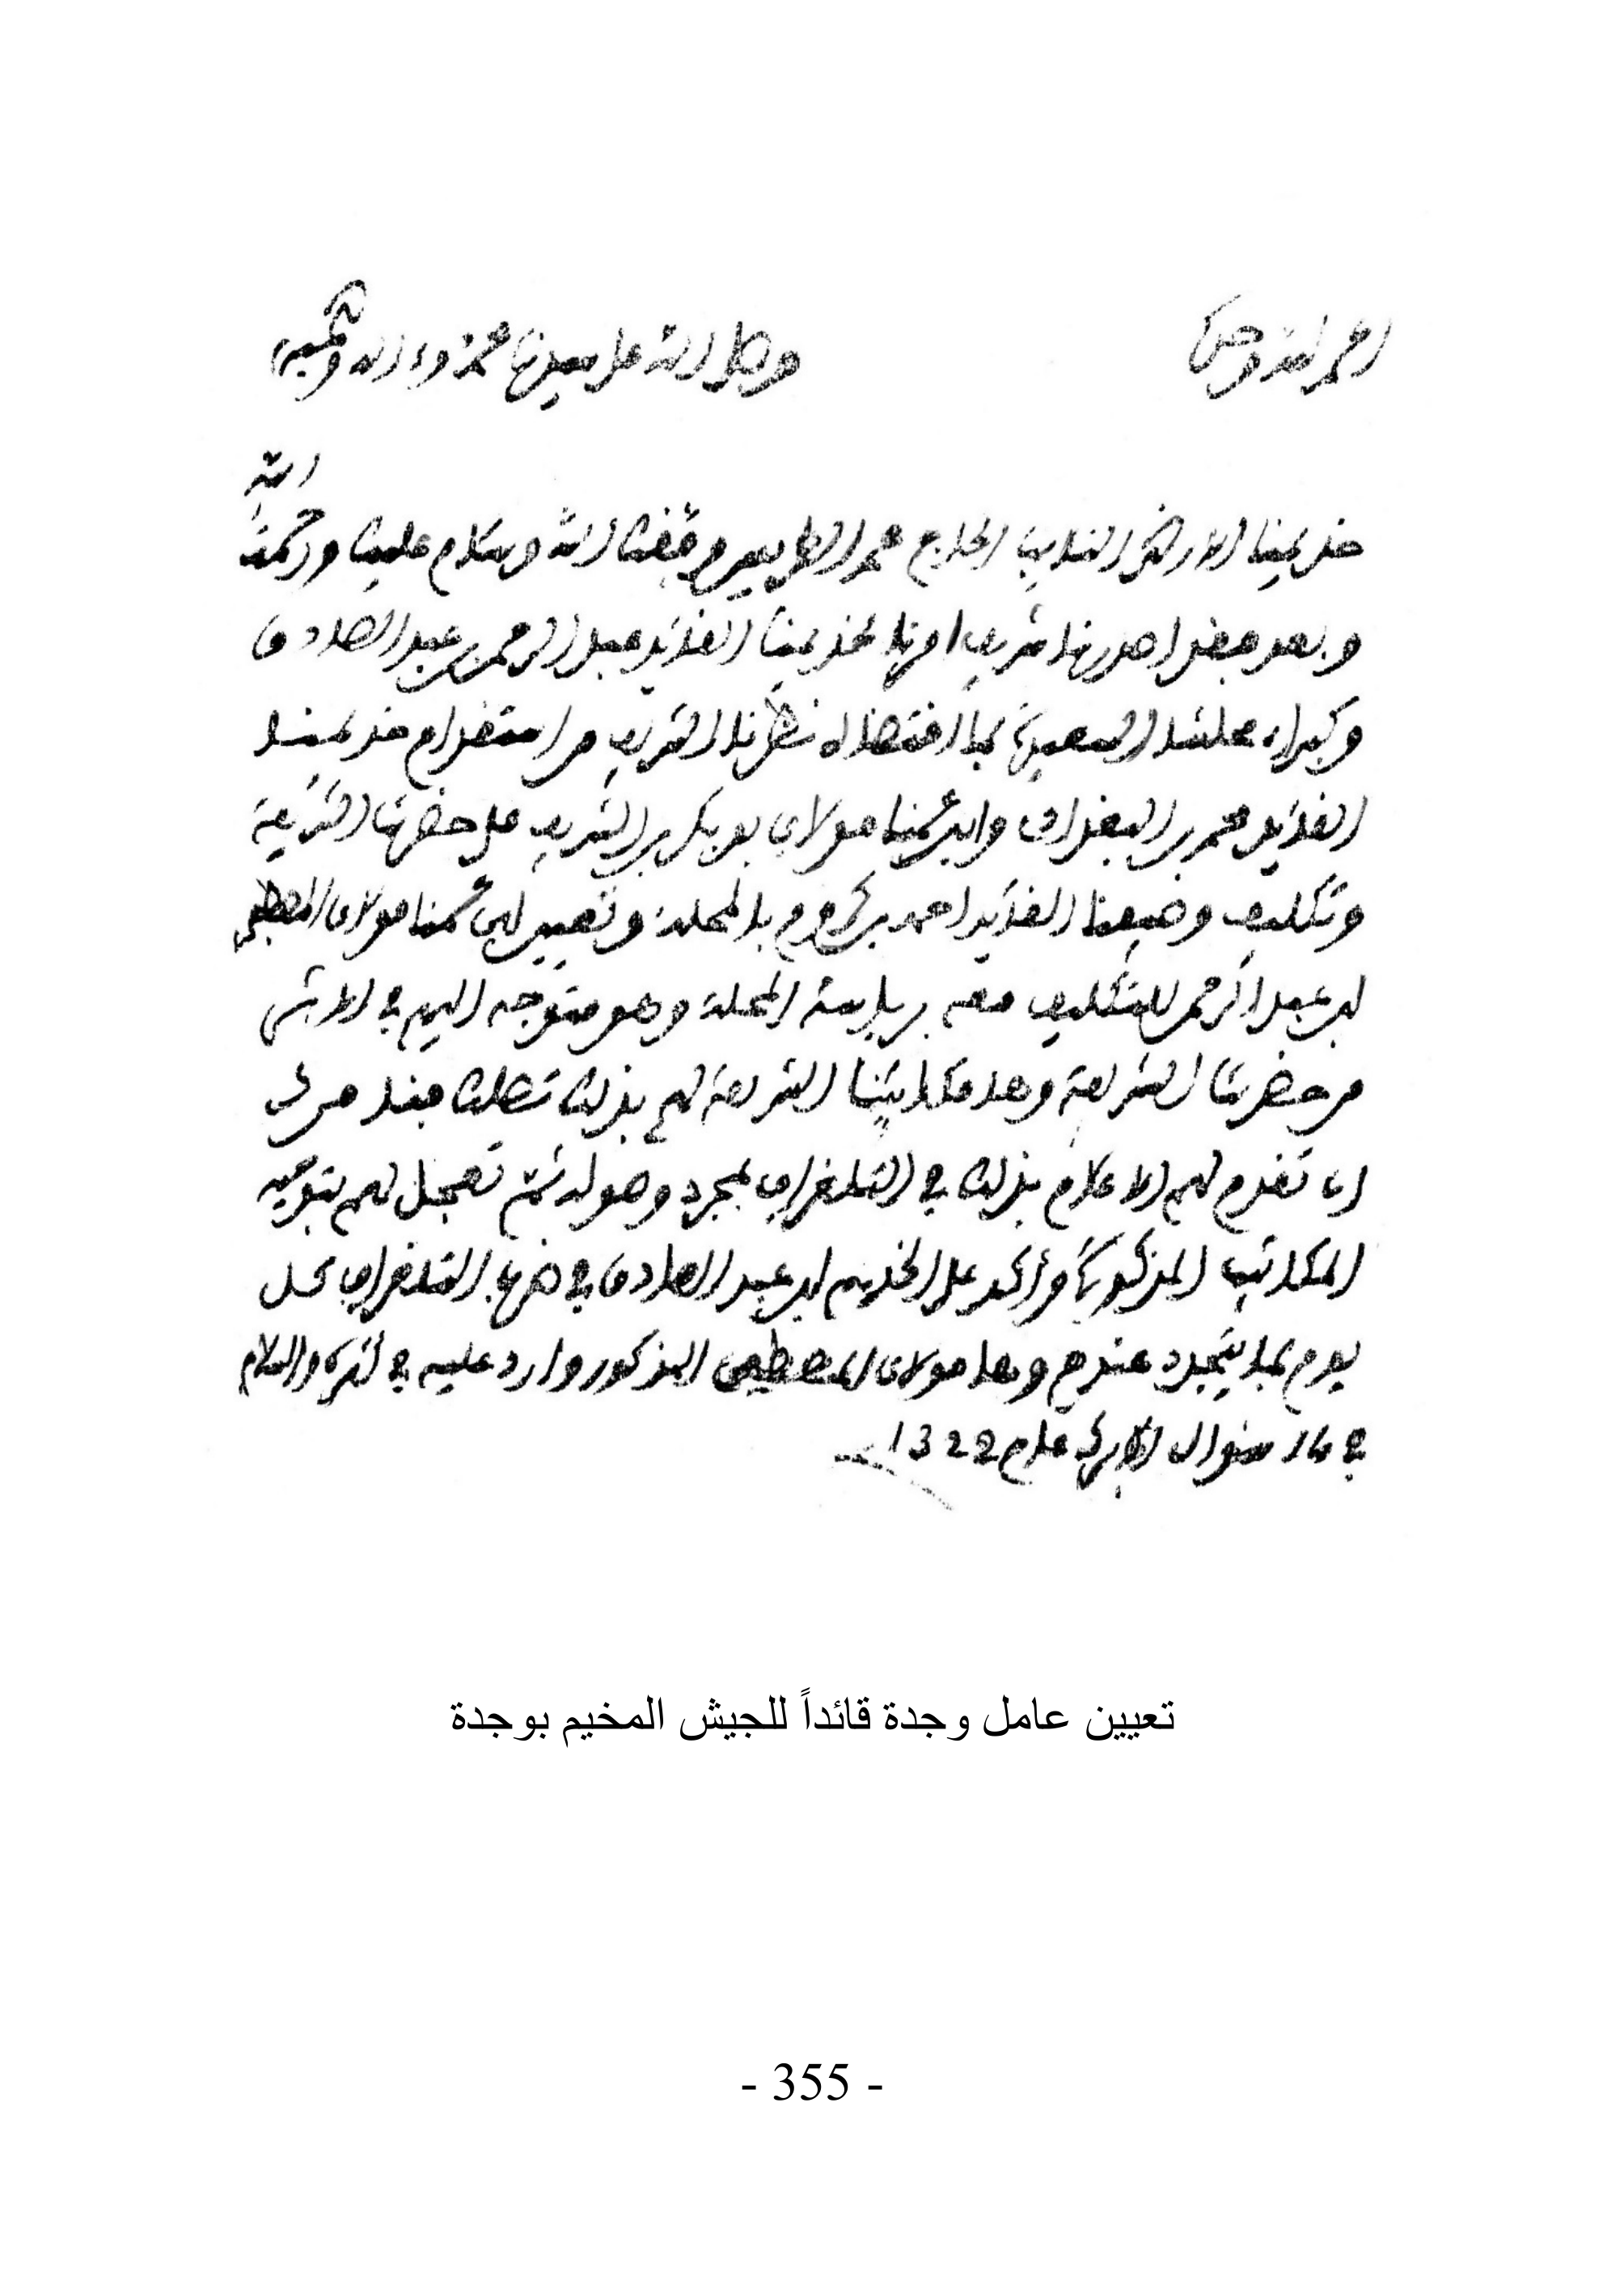 الحمد لله وحده
وصلى الله على سيدنا محمد وءاله وصحبه
خديمنا الارضى النايب الحاج محمد الطريس وفقك الله وسلام عليك ورحمة الله
وبعد فقد اصدرنا شريف امرنا لخديمنا القايد عبد الرحمن بن عبد الصادق
وكبراء محلتنا السعيدة بما اقتضاه نظرنا الشريف من استقدام خديمنا
القايد محمد بن البغدادي وابن عمنا مولاي بوبكر بن الشريف على حضرتنا الشريفة
وتكليف وصيفنا القايد احمد بن كروم بالمحلة وتعيين ابن عمنا مولاي المصطفى
ابن عبد الرحمن للتكليف معه برياسة المحلة وهو متوجه اليهم في الاثر
من حضرتنا الشريفة وها مكاتبتنا الشريفة لهم بذلك تصلك فنامرك
ان تقدم لهم الاعلام بذلك في التلغراف بمجرد وصوله ثم تعجل لهم بتوجيه
المكاتيب المذكورة وأكد على الخديم ابن عبد الصادق في ضرب التلغراف كل
يوم بما يتجدد عندهم وها مولاي المصطفى المذكور وارد عليه في أثره والسلام
في 14 شوال الابرك عام 1322
تعيين عامل وجدة قائداً للجيش المخيم بوجدة
- 355 -